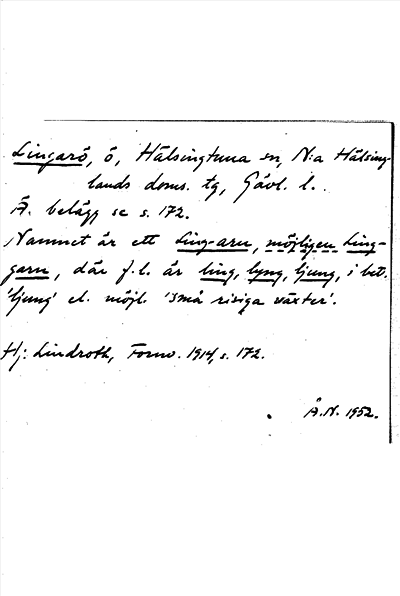 Lingarö, ö, Hälsingtuna sn, N:a Hälsing-
lands doms. tg, Gävl. l.
Ä. belägg se s. 172.
Namnet är ett Ling-arn, möjligen Ling-
garn, där f.l. är ling, lyng, ljung, i bet.
'ljung' el. möjl. 'små risiga växter'.
Hj. Lindroth, Fornv. 1914, s. 172.
Å.N. 1952.